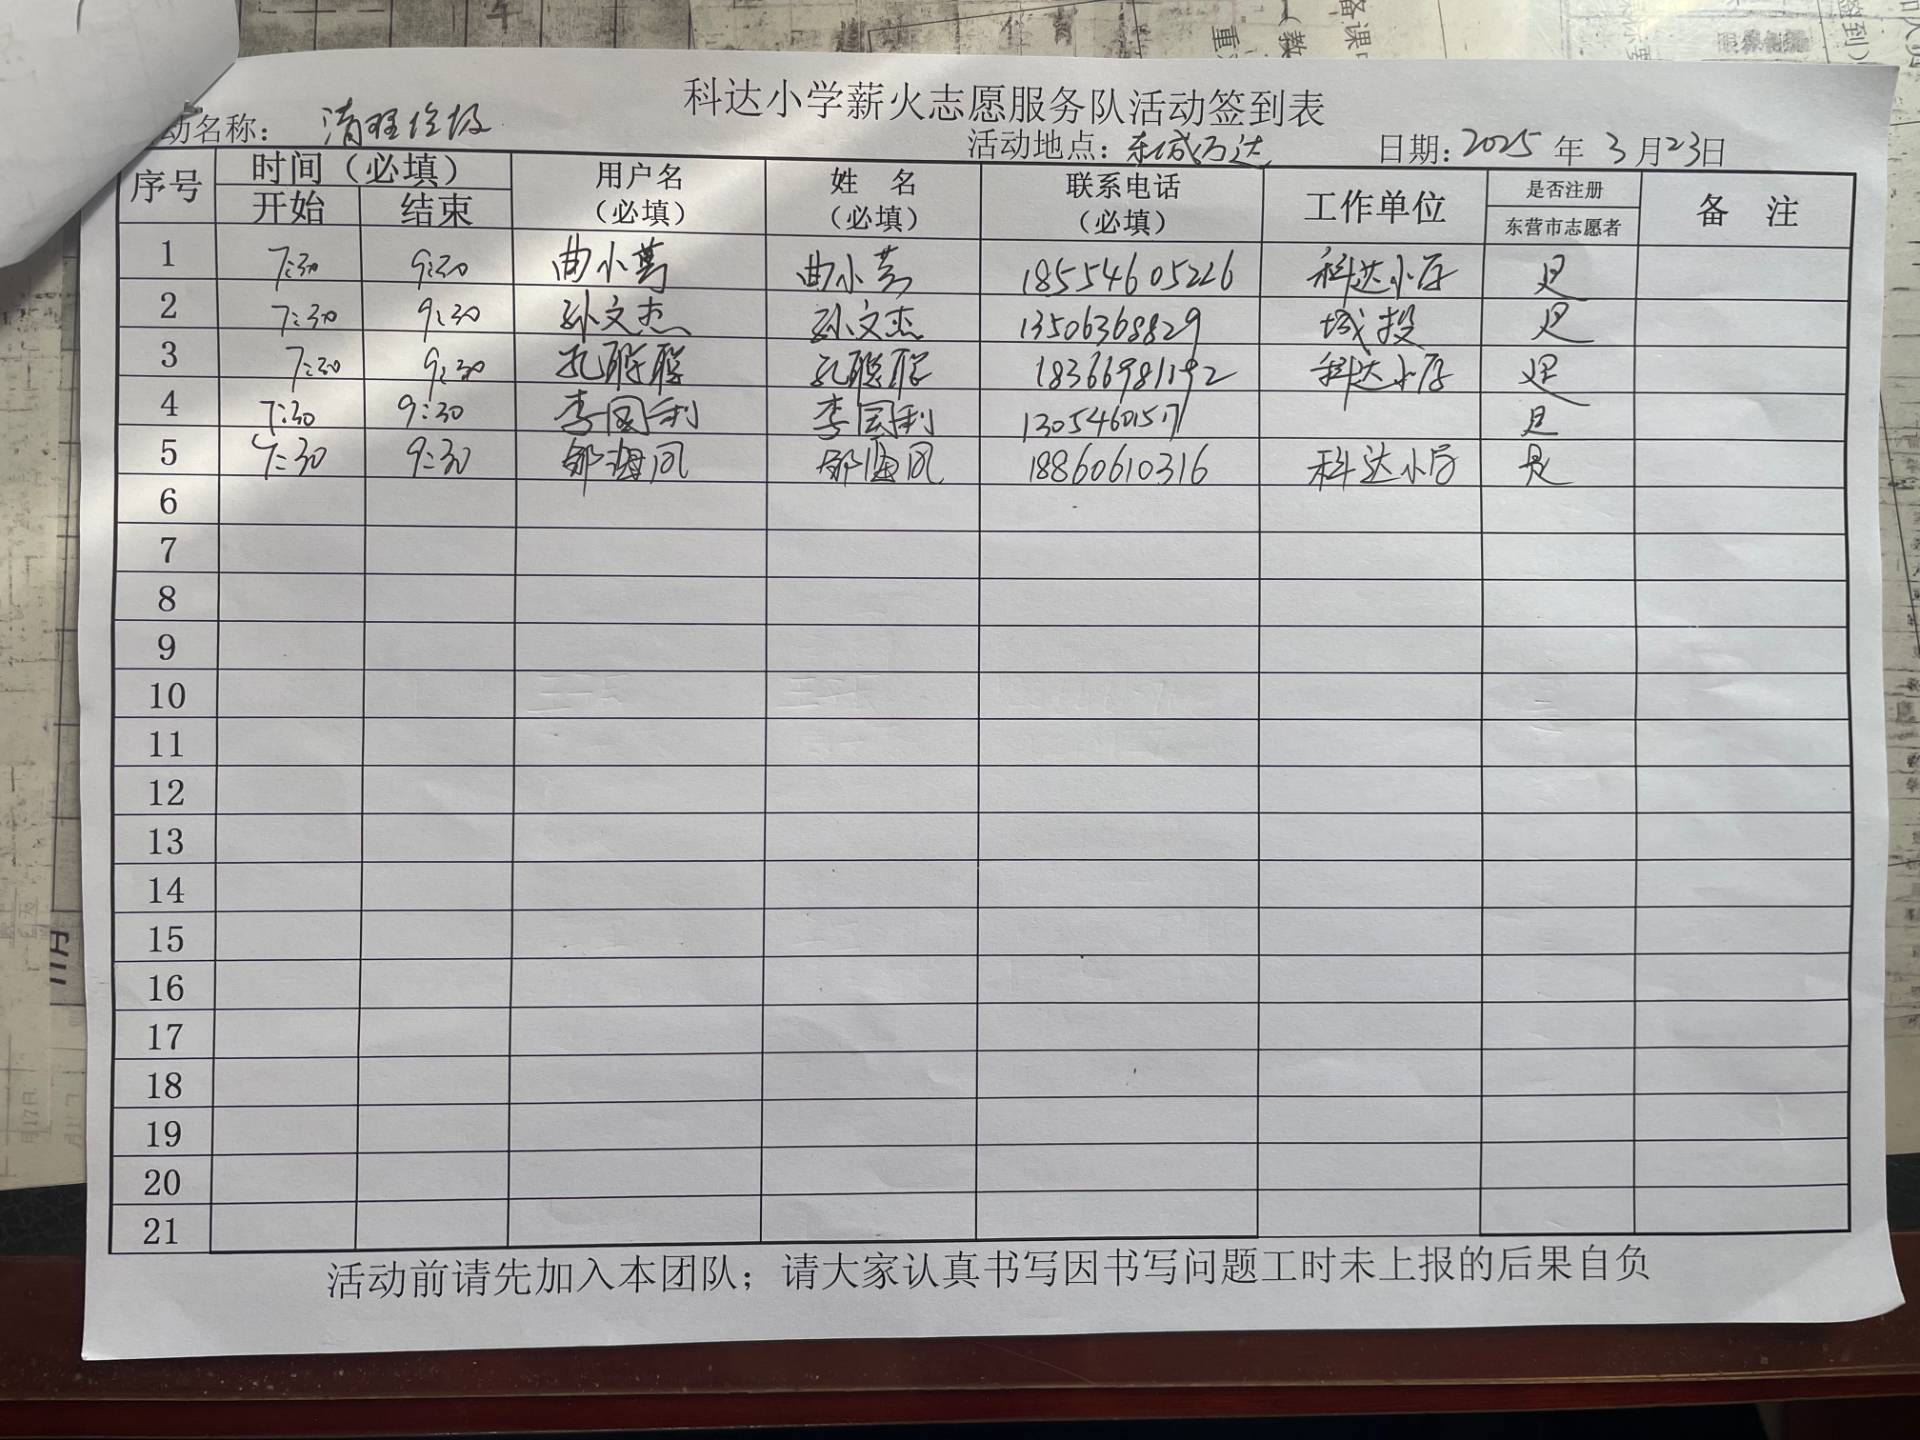 科达小学薪火志愿服务队活动签到表
动名称： 清理垃圾 活动地点：东城万达 日期：2025 年 3 月 23日
序号 时间（必填） 用户名（必填） 姓 名（必填） 联系电话（必填） 工作单位 是否注册 备 注
开始 结束 东营市志愿者
1 7:30 9:30 曲小 曲小 18554605226 科达小学 是
2 7:30 9:30 孙文杰 孙文杰 13506368829 城投 是
3 7:30 9:30 孔聪聪 孔聪聪 18366981192 科达小学 是
4 7:30 9:30 李国利 李国利 13054601517 是
5 7:30 9:30 邹海凤 邹海凤 18860610316 科达小学 是
6
7
8
9
10
11
12
13
14
15
16
17
18
19
20
21
活动前请先加入本团队；请大家认真书写因书写问题工时未上报的后果自负